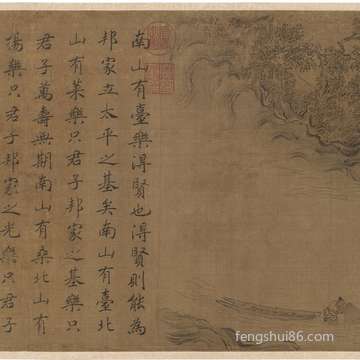 南山有臺樂得賢也得賢則能為
邦家立太平之基矣南山有臺北
山有萊樂只君子邦家之基樂只
君子萬壽無期南山有桑北山有
楊樂只君子邦家之光樂只君子
fengshui86.com